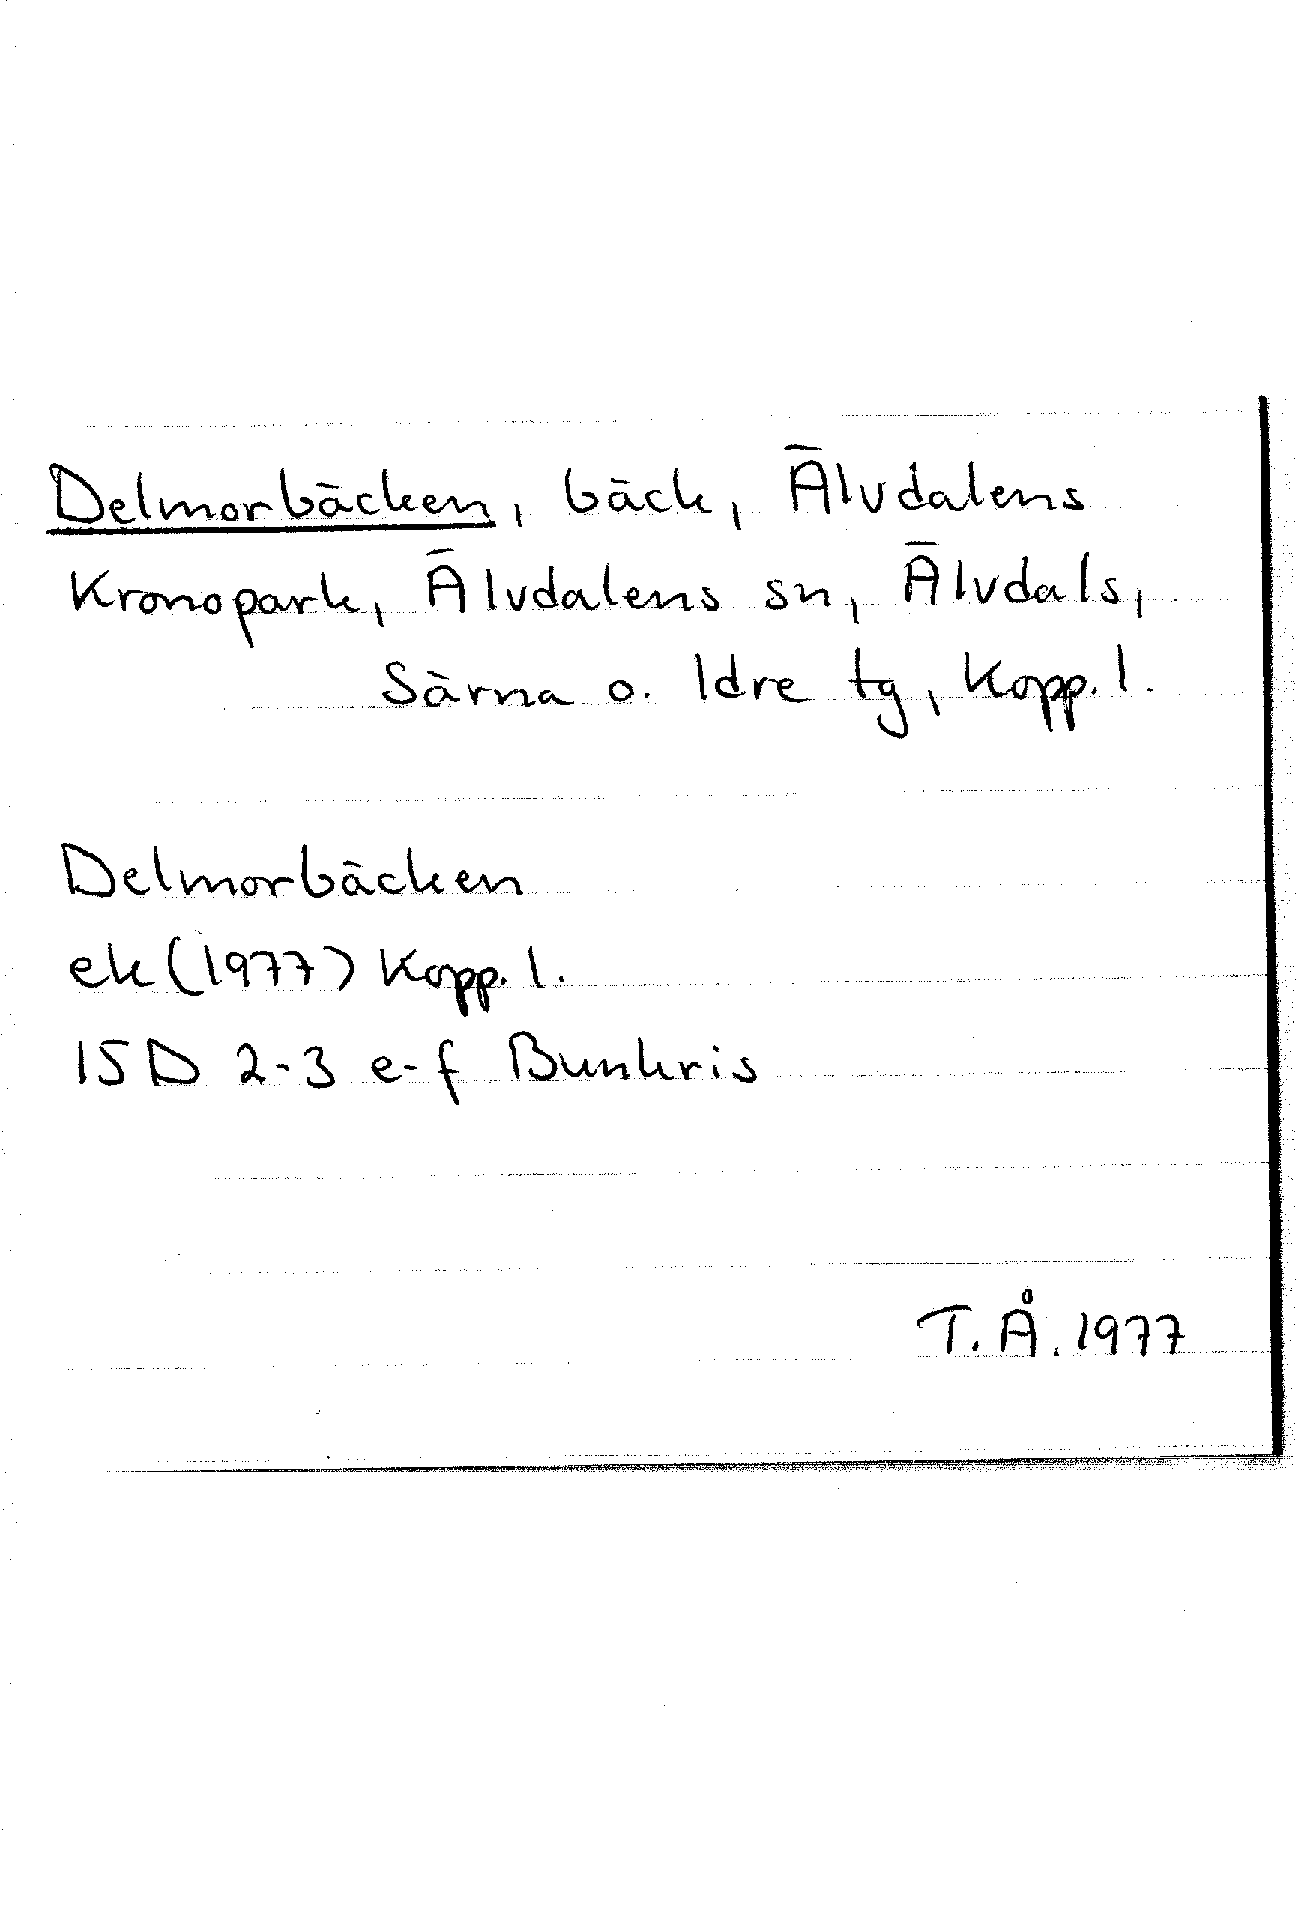 Delmorbäcken, bäck, Älvdalens
Kronopark, Älvdalens sn, Älvdals,
Särna o. Idre tg, Kopp. l.
Delmorbäcken
ek (1977) Kopp. l.
15D 2-3 e-f Bunkris
T.Å. 1977